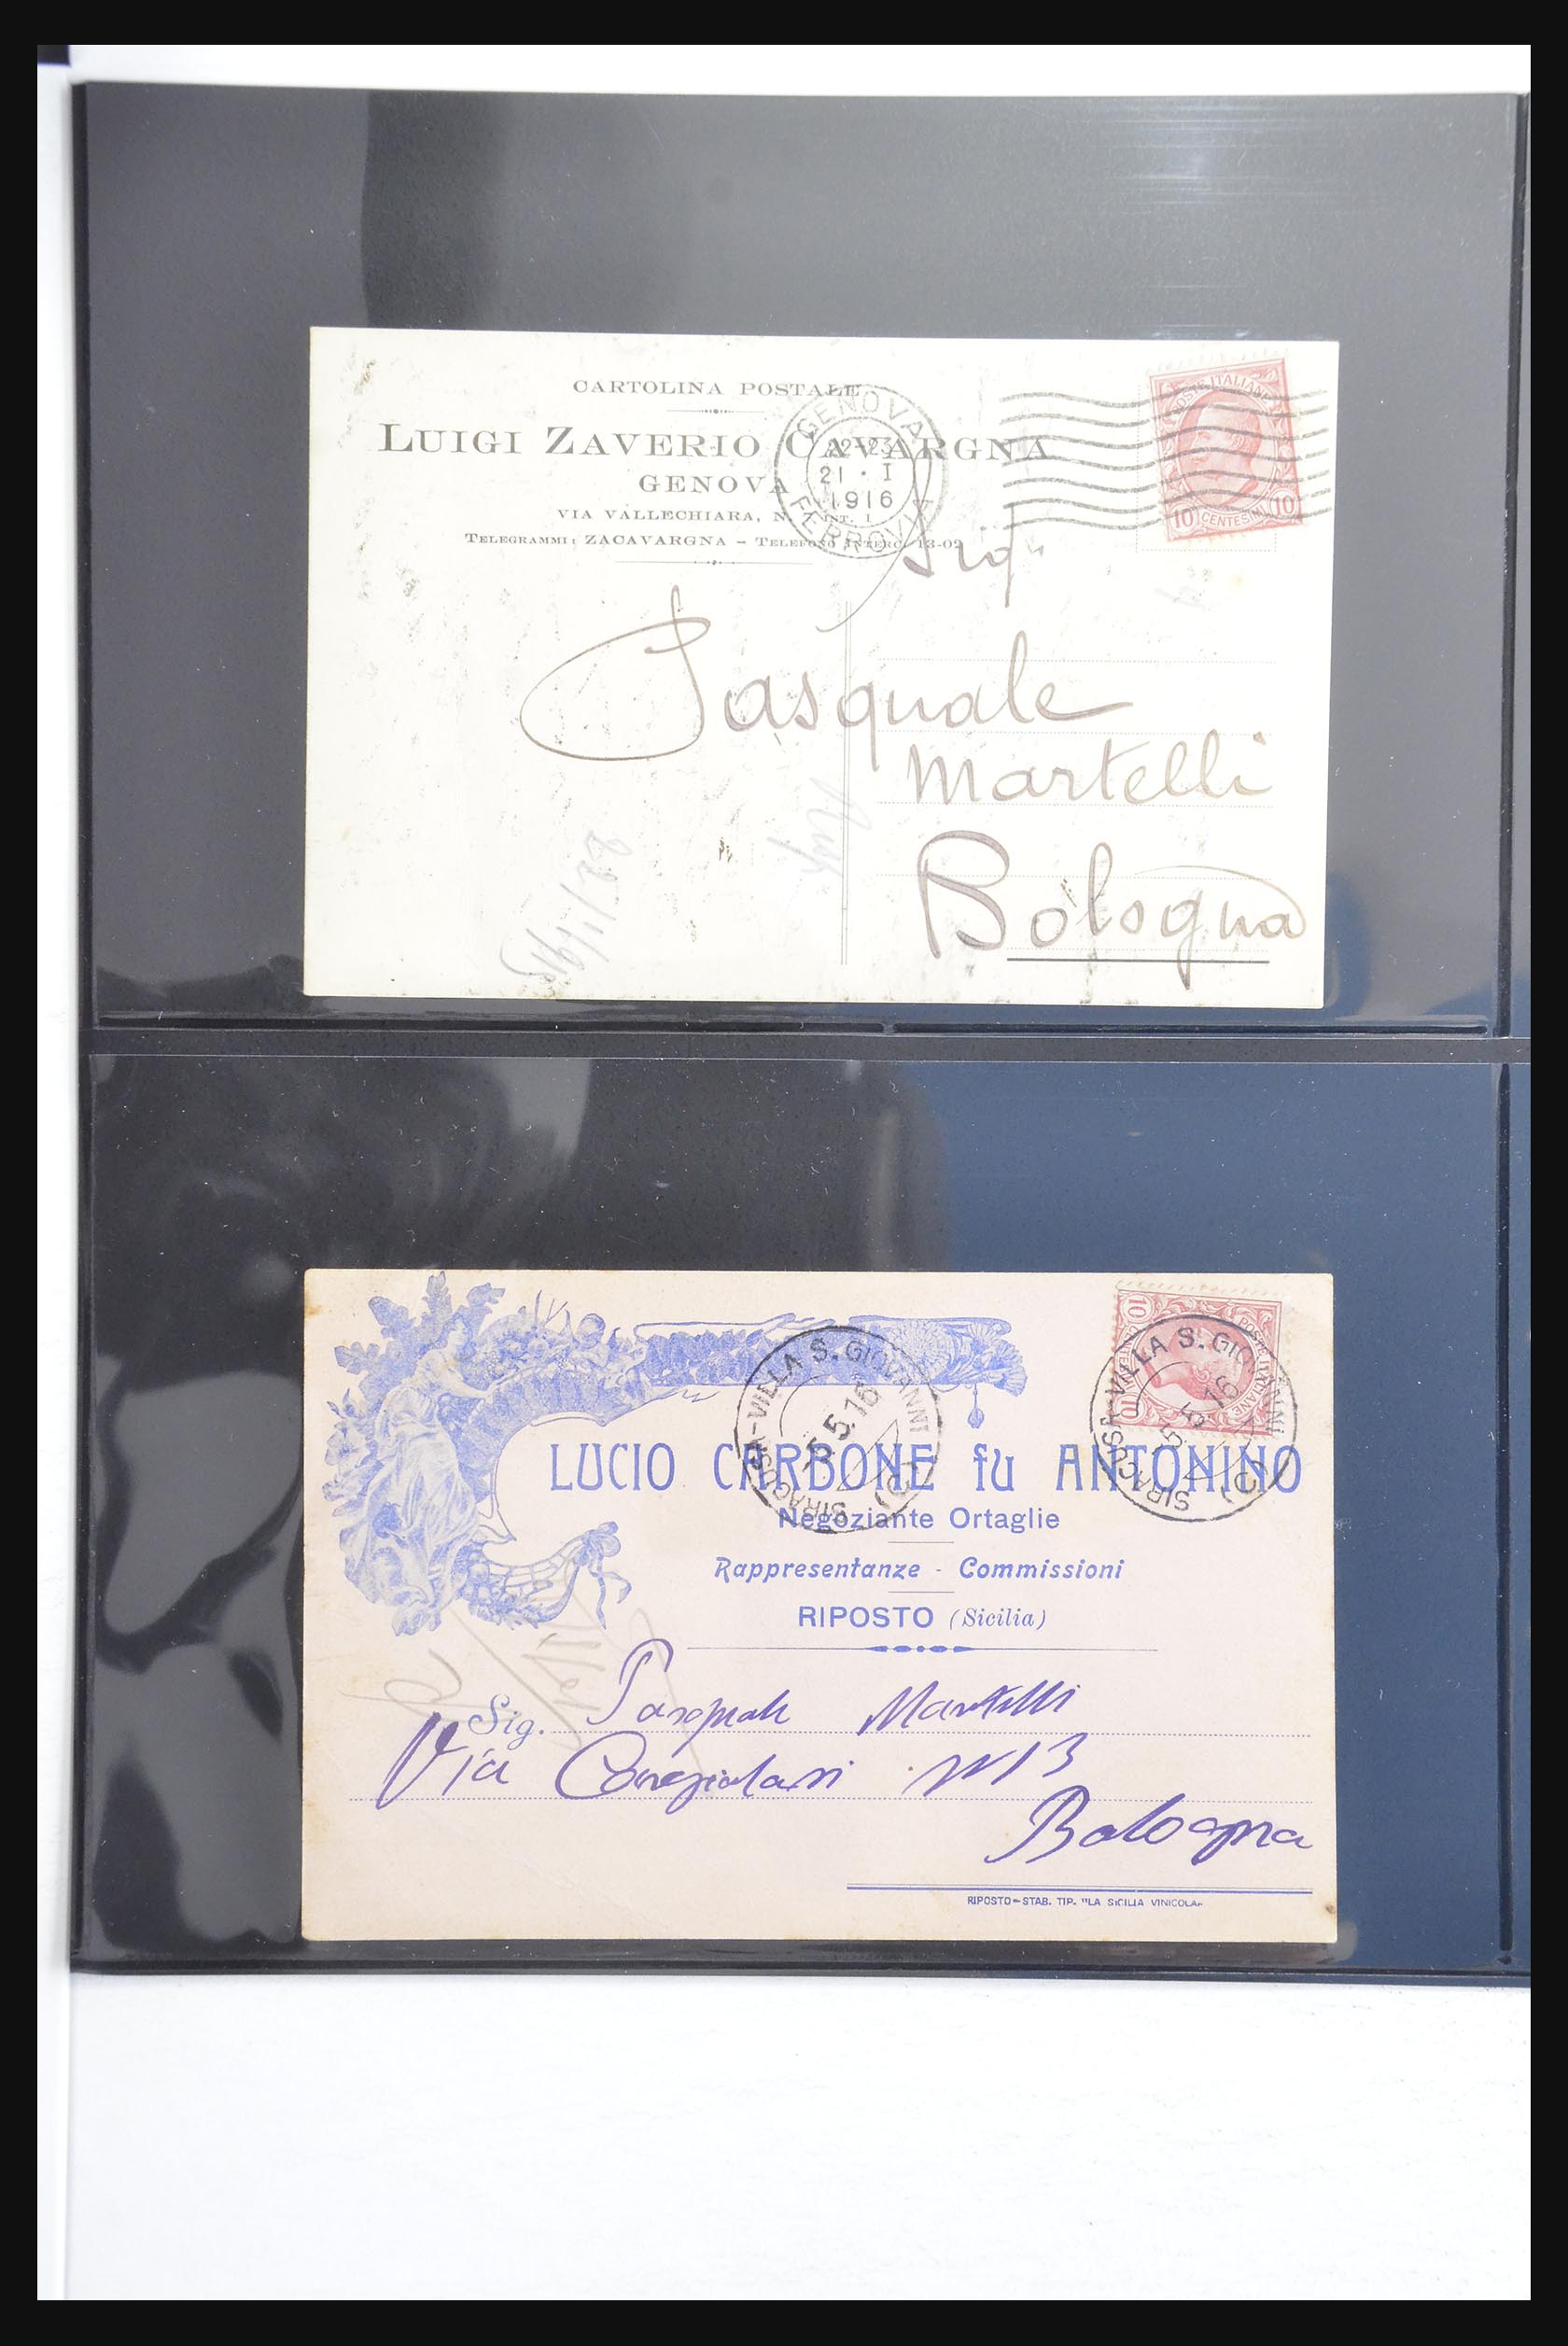 CARTOLINA POSTALE
LUIGI ZAVERIO CAVARGNA
GENOVA
VIA VALLECHIARA, N. INT. 1
TELEGRAMMI: ZACAVARGNA – TELEFONO INTERC. 13-09
GENOVA
22-23
21 · I
1916
FERROVIA
POSTE ITALIANE
10 CENTESIMI 10
Sigr
Pasquale
Martelli
Bologna
22/1/1916
SIRACUSA-VILLA S. GIOVANNI (C)
5.5.16
POSTE ITALIANE
10 10
SIRACUSA-VILLA S. GIOVANNI (C)
5.5.16
LUCIO CARBONE fu ANTONINO
Negoziante Ortaglie
Rappresentanze - Commissioni
RIPOSTO (Sicilia)
Sig. Pasquale Martelli
Via N 13
Bologna
RIPOSTO – STAB. TIP. "LA SICILIA VINICOLA"